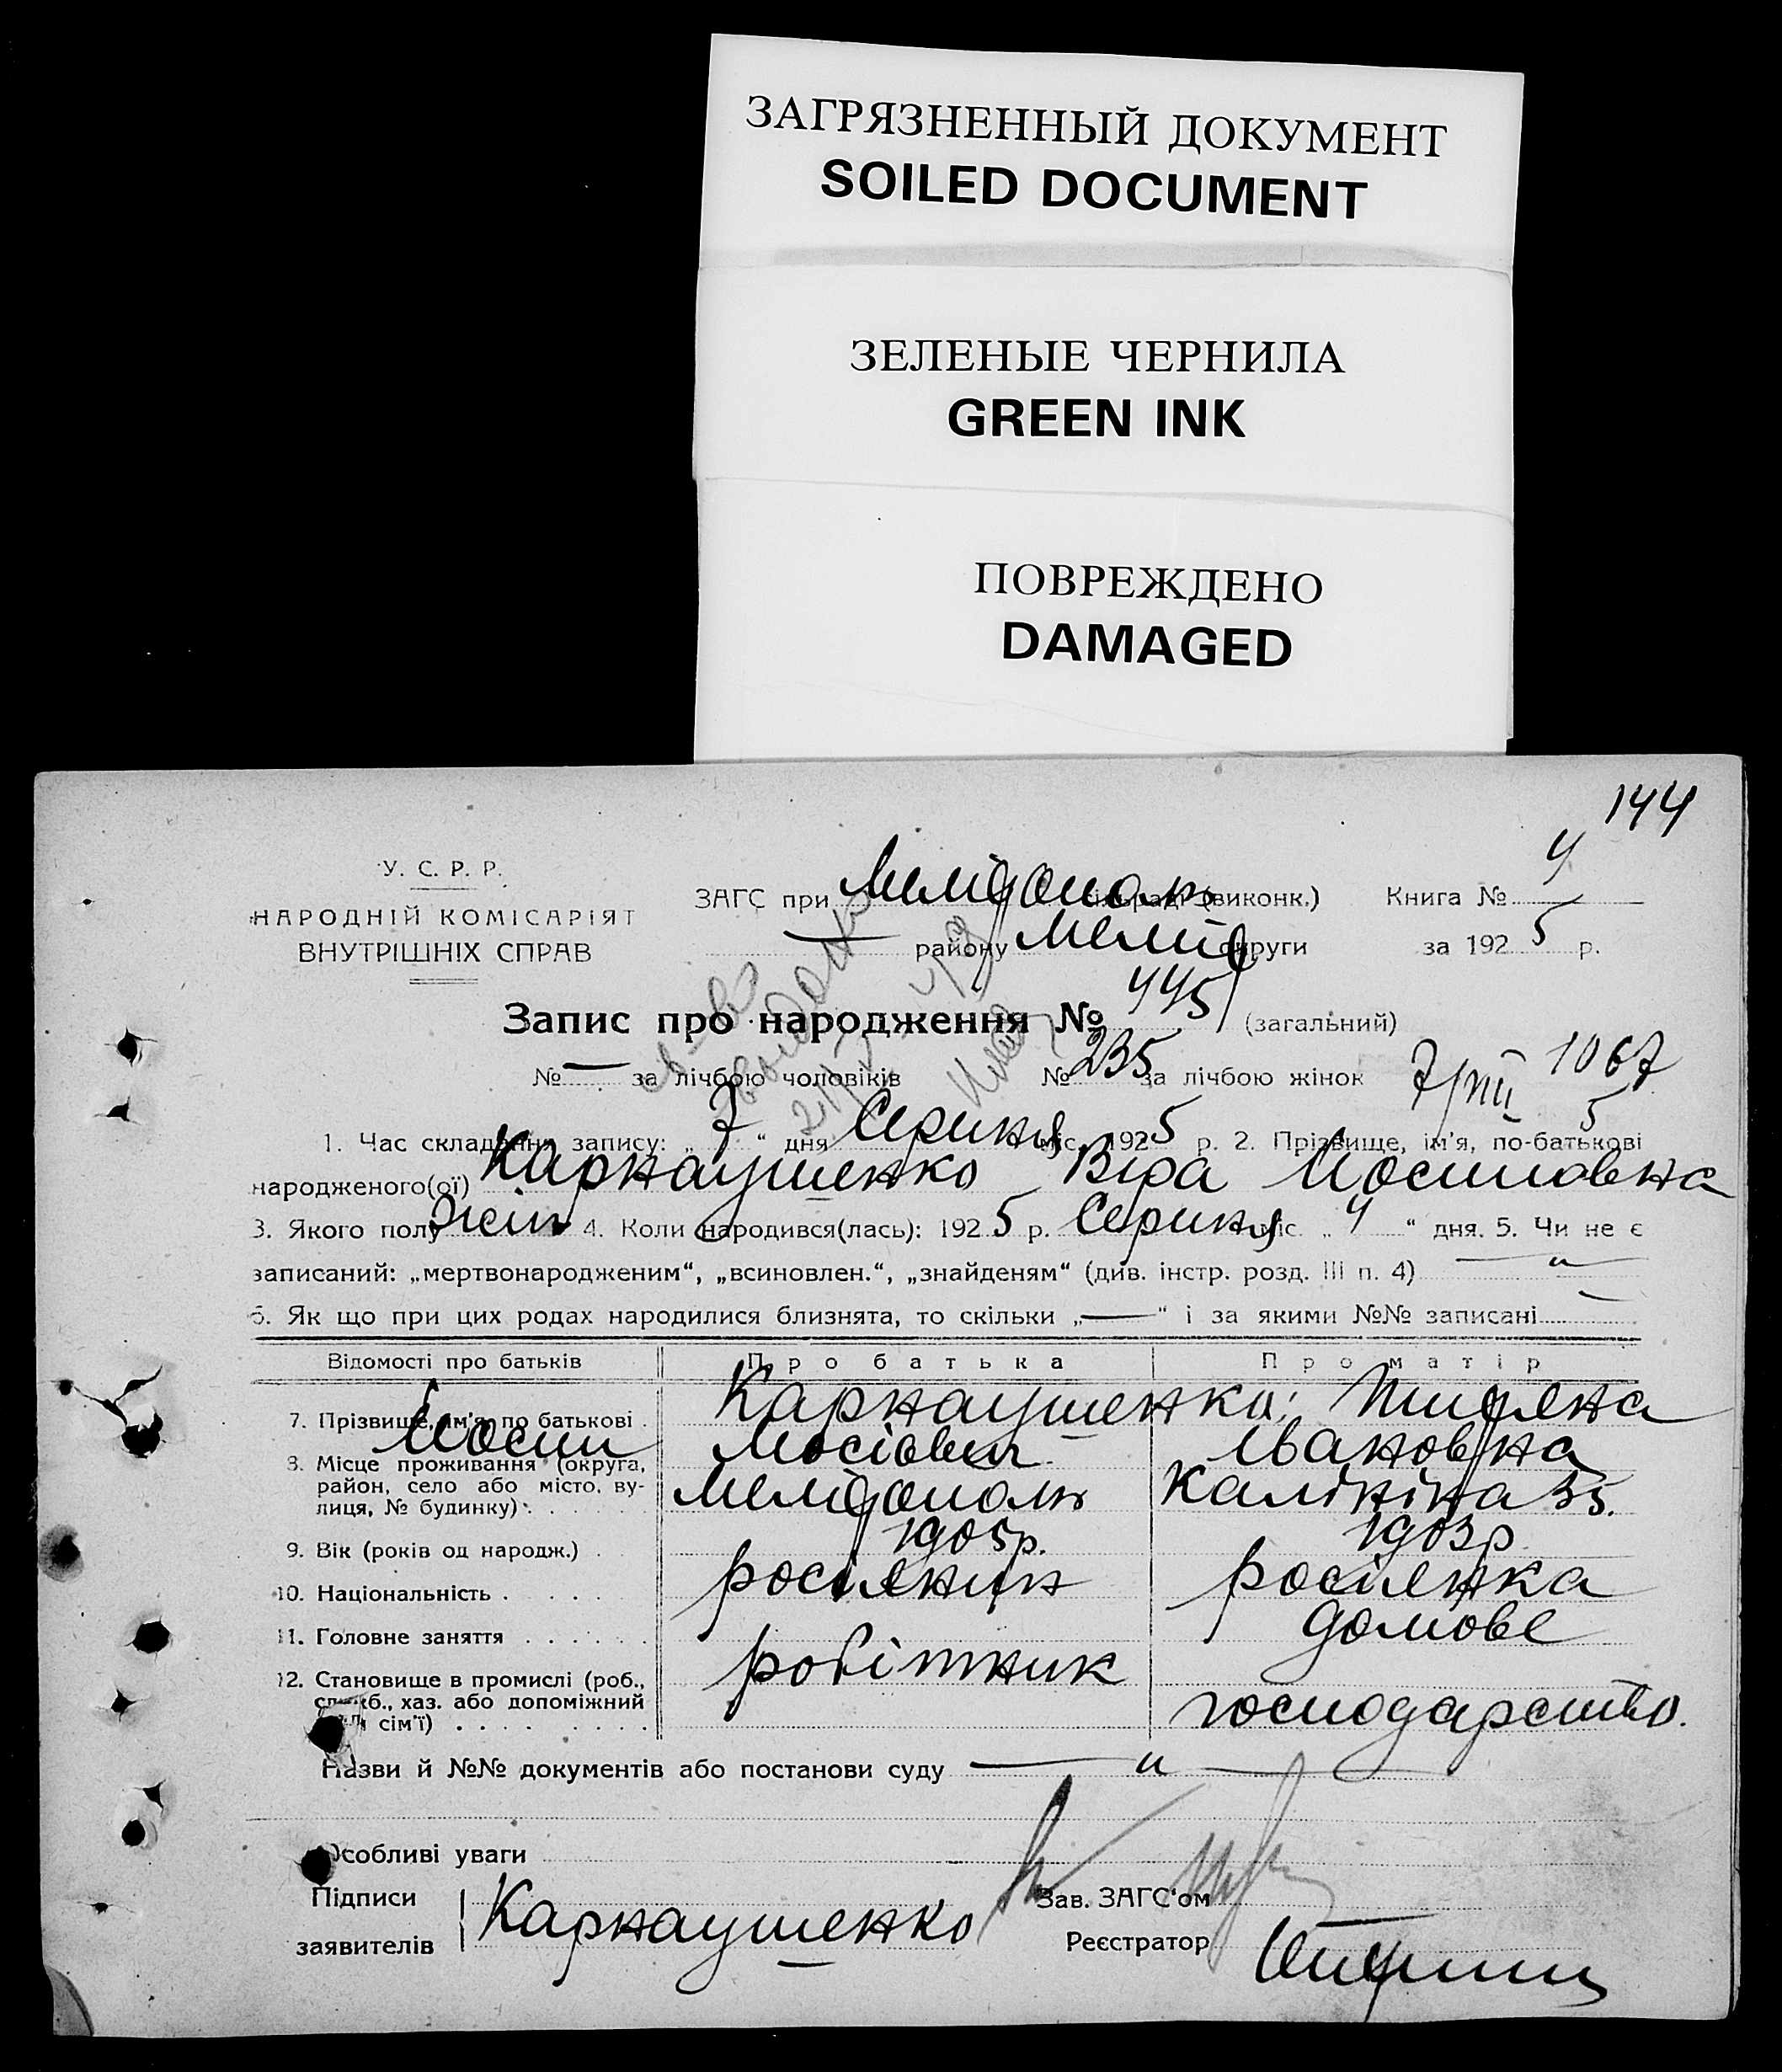 ЗАГРЯЗНЕННЫЙ ДОКУМЕНТ
SOILED DOCUMENT
ЗЕЛЕНЫЕ ЧЕРНИЛА
GREEN INK
ПОВРЕЖДЕНО
DAMAGED
144
У. С. Р. Р.
НАРОДНІЙ КОМІСАРІЯТ
ВНУТРІШНІХ СПРАВ
ЗАГС при Мелідополь (виконк.) Книга № 4
— району Мелід округи за 1925 р.
Запис про народження № 445 (загальний)
№ — за лічбою чоловіків № 235 за лічбою жінок
1067
1. Час складання запису: „7“ дня Серпня міс. 1925 р. 2. Прізвище, ім'я, по-батькові
народженого(ої) Карнаушенко Віра Йосиповна
3. Якого полу жін 4. Коли народився(лась): 1925 р. Серпня міс. „4“ дня. 5. Чи не є
записаний: „мертвонародженим“, „всиновлен.“, „знайденям“ (див. інстр. розд. III п. 4) — „ —
6. Як що при цих родах народилися близнята, то скільки „—“ і за якими №№ записані
Відомості про батьків Про батька Про матір
7. Прізвище, ім'я, по батькові Карнаушенко
Йосип Мосієвич Івановна
8. Місце проживання (округа, район, село або місто, вулиця, № будинку) Мелідополь Калініна 35.
9. Вік (років од народж.) 1905р. 1903р.
10. Національність росіянин росіянка
11. Головне заняття робітник домове
12. Становище в промислі (роб., служб., хаз. або допоміжний сім'ї) господарство.
Назви й №№ документів або постанови суду — „ —
Особливі уваги
Підписи заявителів Карнаушенко
Зав. ЗАГС'ом
Реєстратор